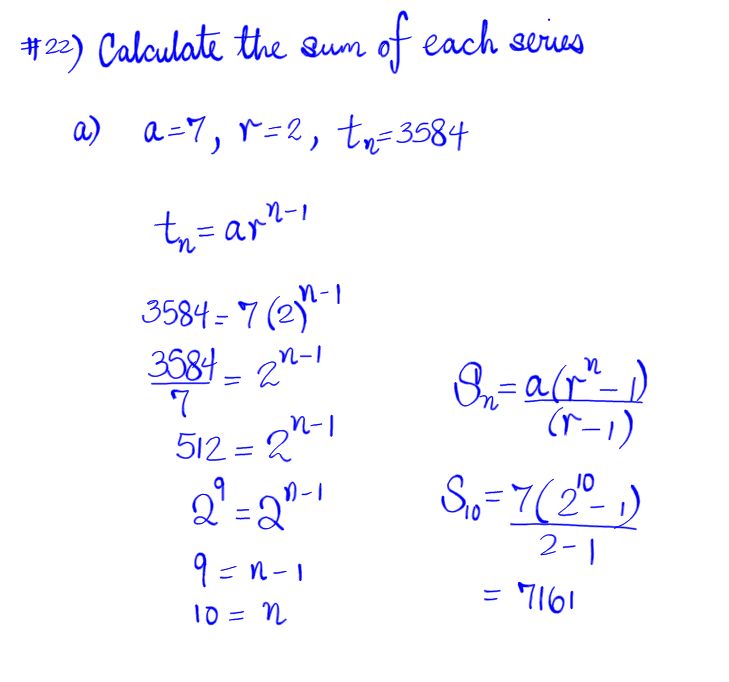 #22) Calculate the sum of each series
a) a=7, r=2, tₙ=3584
tₙ = arⁿ⁻¹
3584 = 7(2)ⁿ⁻¹
3584/7 = 2ⁿ⁻¹
512 = 2ⁿ⁻¹
2⁹ = 2ⁿ⁻¹
9 = n-1
10 = n
Sₙ = a(rⁿ-1)/(r-1)
S₁₀ = 7(2¹⁰-1)/2-1
= 7161